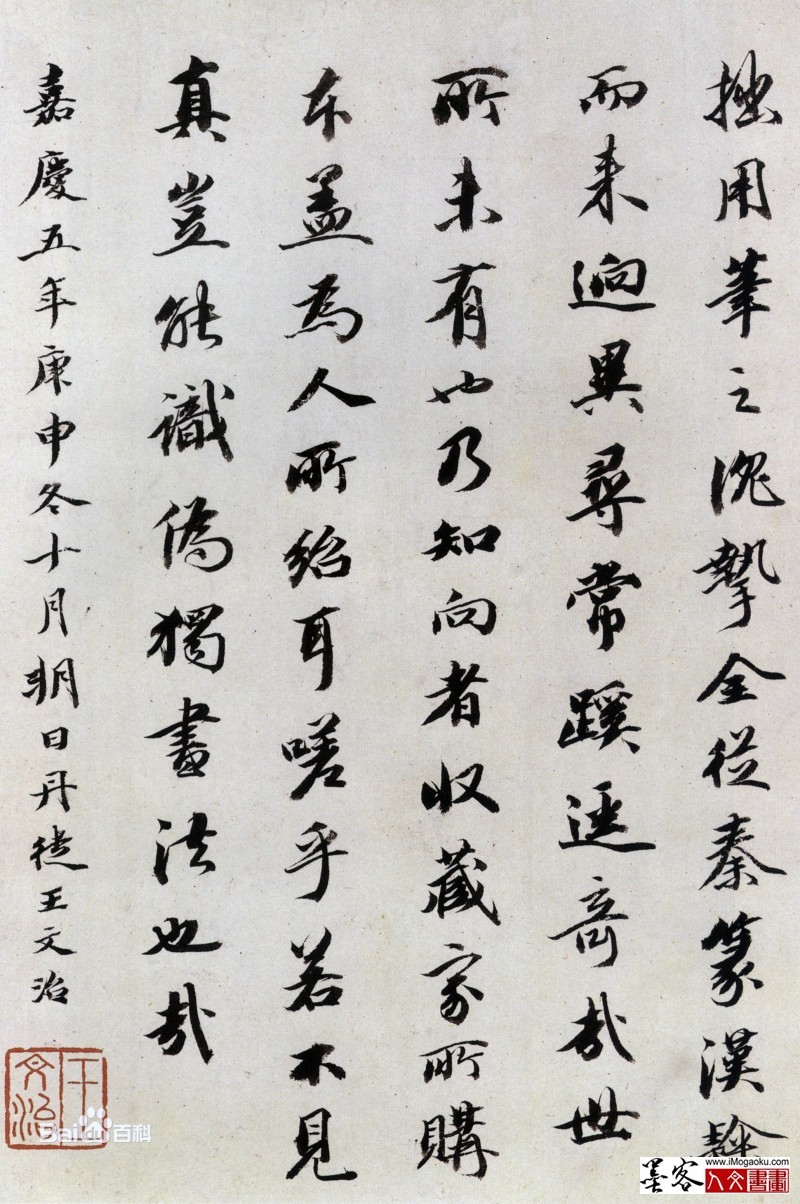 拙用筆之沈摯全從秦篆漢隸
而来迥異尋常蹊逕奇哉世
所未有也乃知向者收藏家所購
本盖為人所紿耳嗟乎若不見
真豈能識偽獨畫法也哉
嘉慶五年庚申冬十月朔日丹徒王文治
王文治
Bai du 百科
墨客
www.iMogaoku.com
人文書畫